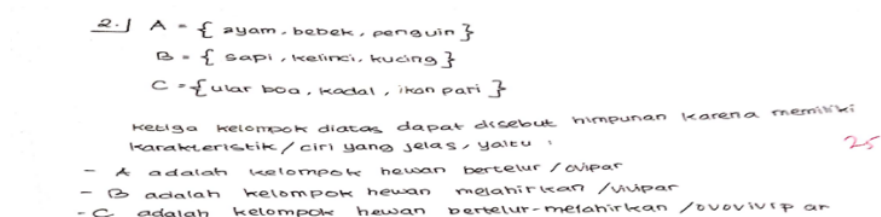 2.) A = { ayam, bebek, penguin }
B = { sapi, kelinci, kucing }
C = { ular boa, kadal, ikan pari }
Ketiga kelompok diatas dapat disebut himpunan karena memiliki
karakteristik / ciri yang jelas, yaitu :
25
- A adalah kelompok hewan bertelur / ovipar
- B adalah kelompok hewan melahirkan / vivipar
- C adalah kelompok hewan bertelur-melahirkan / ovovivipar